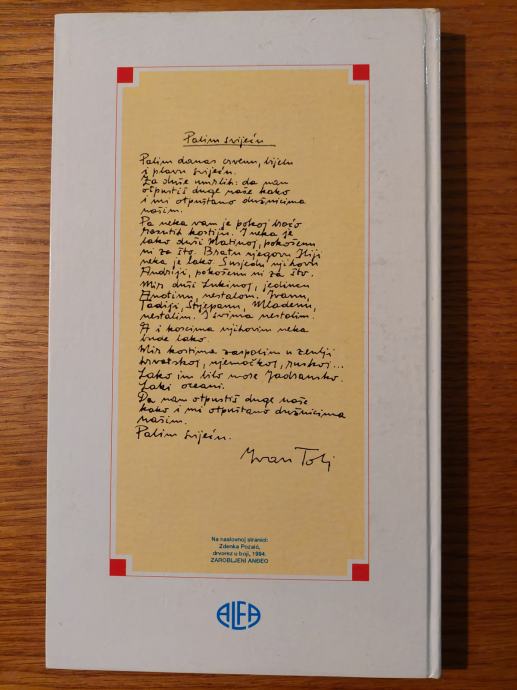 Palim svijeću
Palim danas crvenu, bijelu
i plavu svijeću.
Za duše umrlih: da nam
otpustiš duge naše kako
i mi otpuštamo dužnicima
našim.
Pa neka vam je pokoj braćo
rasutih kostiju. I neka je
lako duši Matinoj, pokošenu
ni za što. Bratu njegovu Iliji
neka je lako. Susjedu njihovu
Andriji, pokošenu ni za što.
Mir duši Lukinoj, jedincu
Antinu, nestalom. Ivanu,
Tadiji, Stjepanu, Mladenu,
nestalim. I svima nestalim.
A i koscima njihovim neka
bude lako.
Mir kostima zaspalim u zemlji
hrvatskoj, njemačkoj, ruskoj...
Lako im bilo more Jadransko.
Laki oceani.
Da nam otpustiš duge naše
kako i mi otpuštamo dužnicima
našim.
Palim svijeću.
Ivan Tolj
Na naslovnoj stranici:
Zdenka Pozaić,
drvorez u boji, 1994.
ZAROBLJENI ANĐEO
ALFA